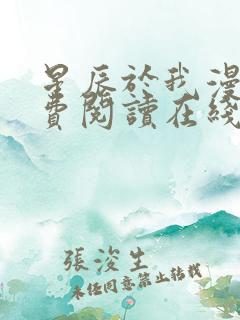 星辰於我漫
費閱讀在綫
張浚生
未经同意禁止转载